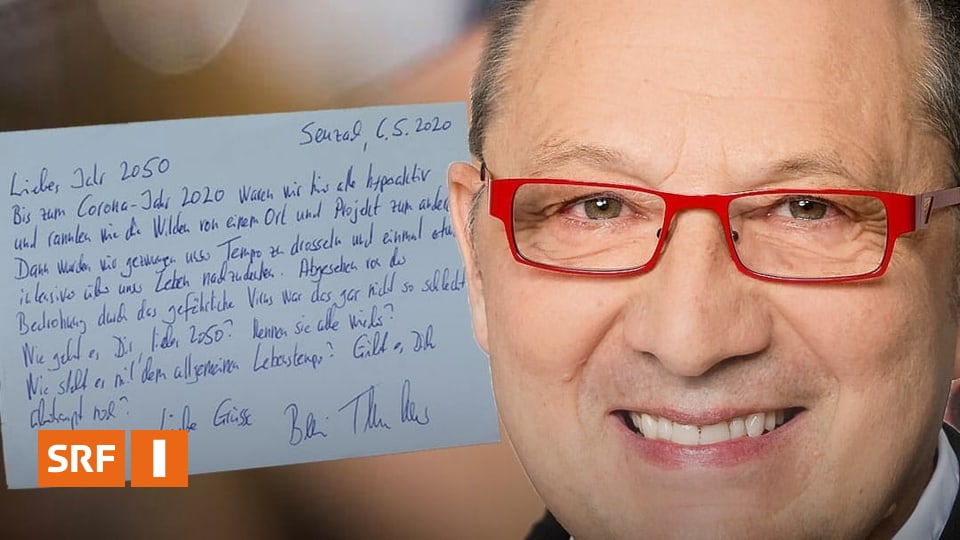 Seuzach, 6.5.2020
Liebes Jahr 2050
Bis zum Corona-Jahr 2020 waren wir hier alle hyperaktiv
und rannten wie die Wilden von einem Ort und Projekt zum andern
Dann wurden wir gezwungen unser Tempo zu drosseln und einmal etwas
intensiver über unser Leben nachzudenken. Abgesehen von der
Bedrohung durch das gefährliche Virus war das gar nicht so schlecht.
Wie geht es Dir, liebes 2050? Rennen sie alle wieder?
Wie steht es mit dem allgemeinen Lebenstempo? Gibt es Dich
überhaupt noch?
Liebe Grüsse
SRF 1